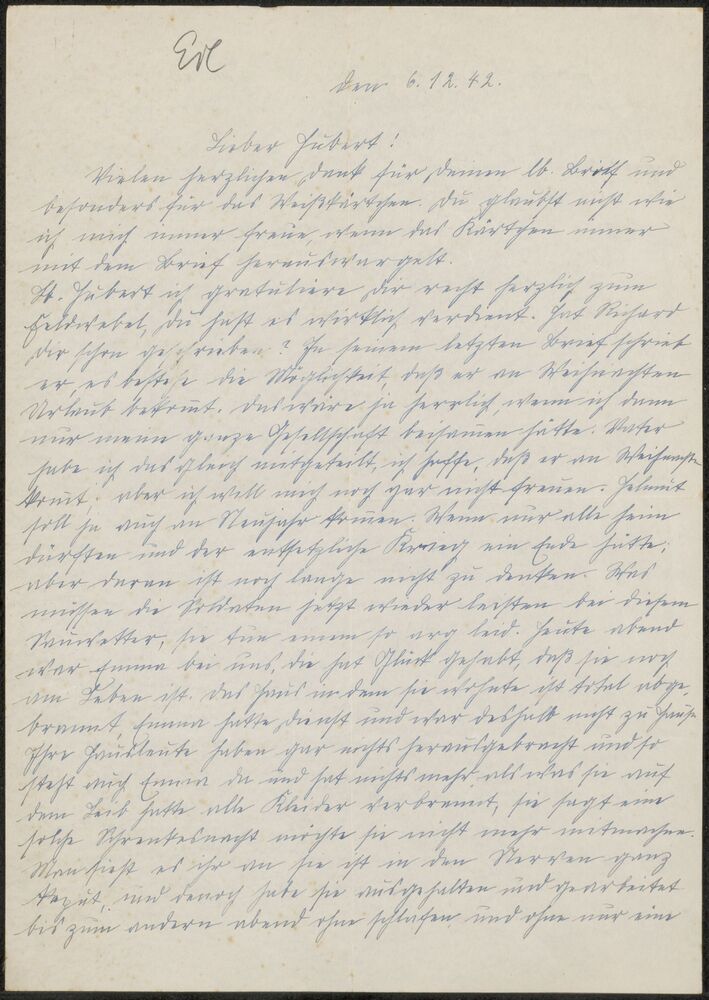 Erl
den 6.12.42.
Lieber Hubert!
Vielen herzlichen Dank für Deinen lb. Brief und
besonders für das Weißkärtchen. Du glaubst nicht wie
ich mich immer freue, wenn das Kärtchen immer
mit dem Brief herauswargelt.
Lb. Hubert ich gratuliere Dir recht herzlich zum
Feldwebel, Du hast es wirklich verdient. Hat Richard
Dir schon geschrieben? In seinem letzten Brief schrieb
er, es bestehe die Möglichkeit, daß er an Weihnachten
Urlaub bekomt. Das wäre ja herrlich, wenn ich dann
nur meine ganze Gesellschaft beisamen hätte. Vater
habe ich das gleich mitgeteilt, ich hoffe, daß er an Weihnacht
komt, aber ich will mich noch gar nicht freuen. Helmut
soll ja auch an Neujahr komen. Wenn nur alle heim
dürften und der entsetzliche Krieg ein Ende hätte;
aber daran ist noch lange nicht zu denken. Was
müssen die Soldaten jetzt wieder leisten bei diesem
Sauwetter, sie tun einem so arg leid. Heute abend
war Emma bei uns, die hat Glück gehabt, daß sie noch
am Leben ist. Das Haus in dem sie wohnte ist total abge-
brannt, Emma hatte Dienst und war deshalb nicht zu Hause
Ihre Hausleute haben gar nichts herausgebracht und so
steht auch Emma da und hat nichts mehr als was sie auf
dem Leib hatte alle Kleider verbrannt, sie sagt eine
solche Schreckesnacht möchte sie nicht mehr mitmachen.
Man sieht es ihr an sie ist in den Nerven ganz
kaput, und denoch habe sie ausgehalten und gearbeitet
bis zum andern abend ohne schlafen und ohne nur eine